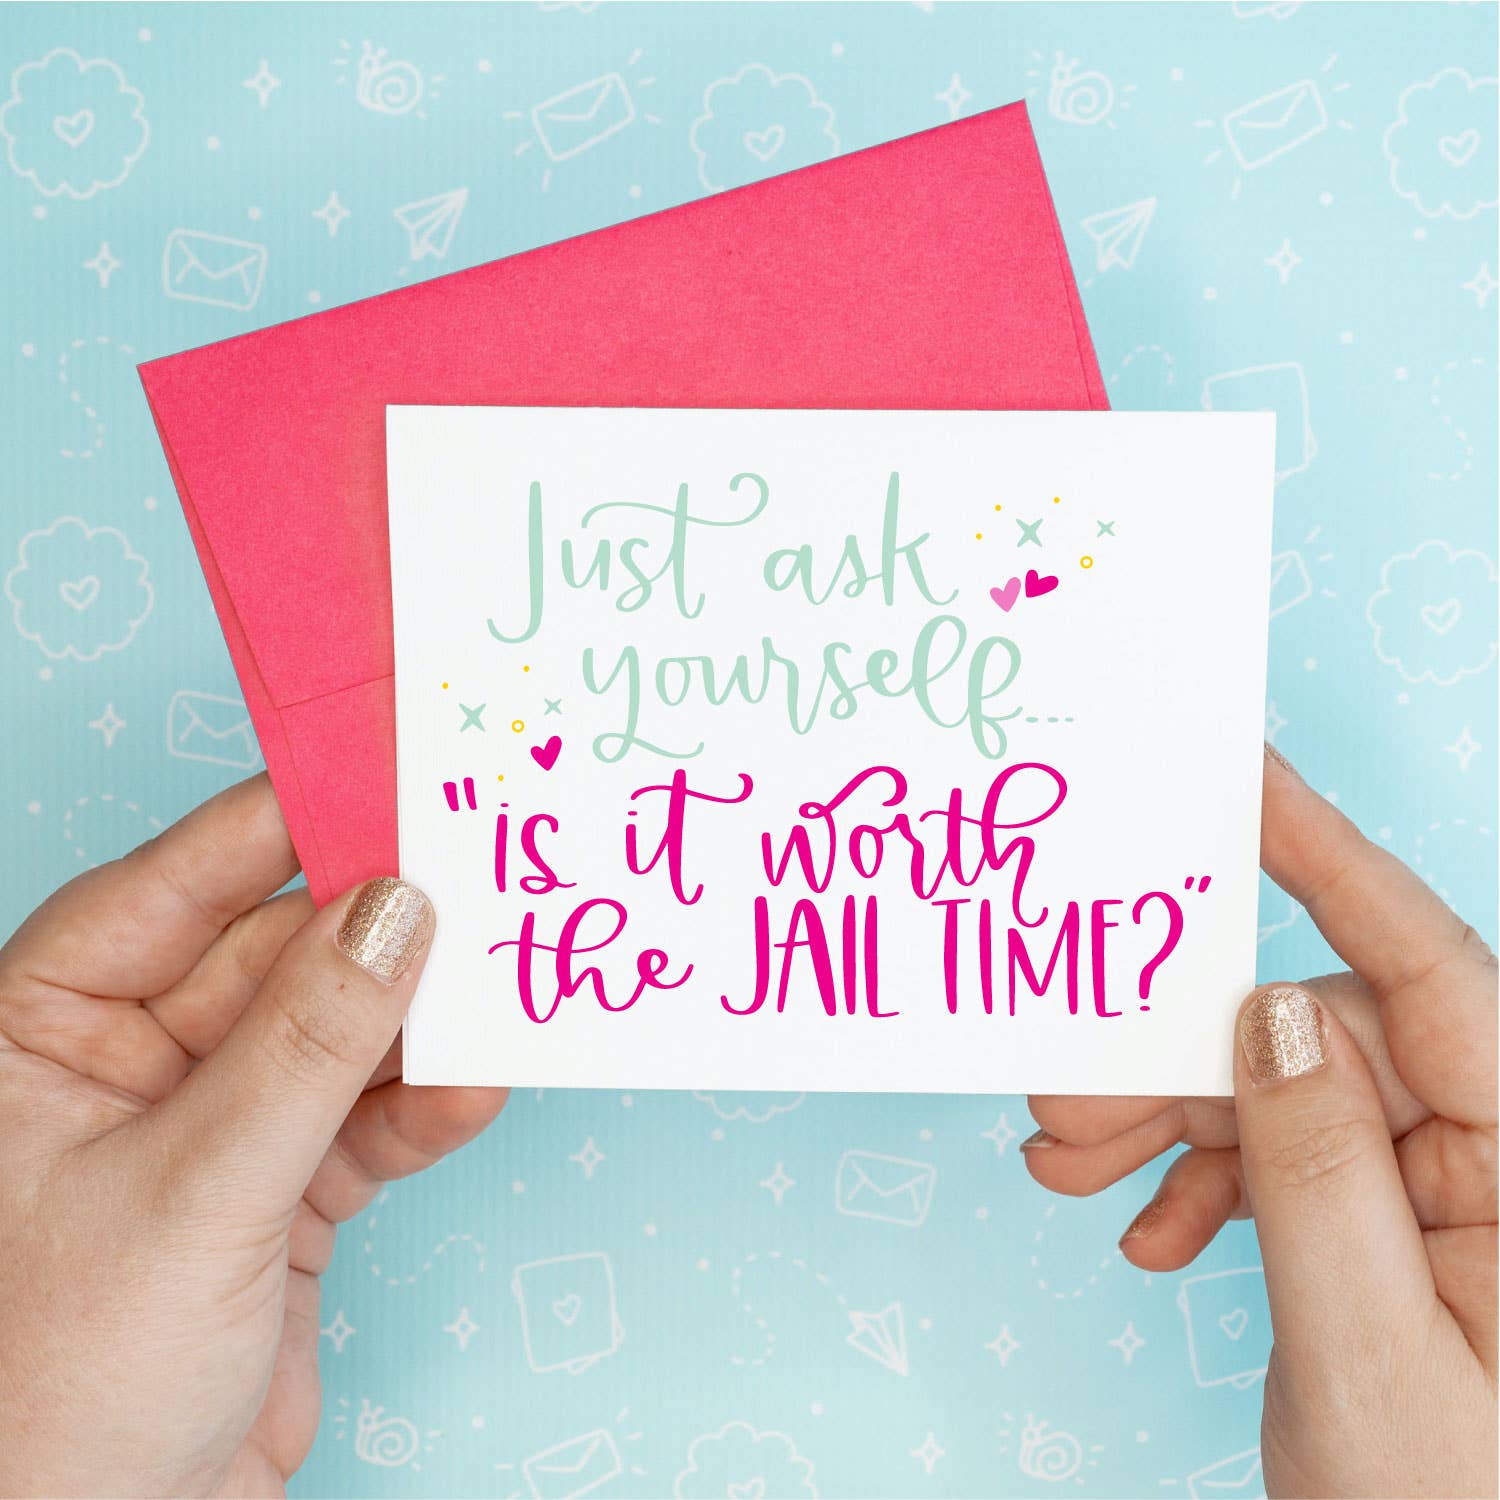 Just ask
yourself...
"is it worth
the JAIL TIME?"